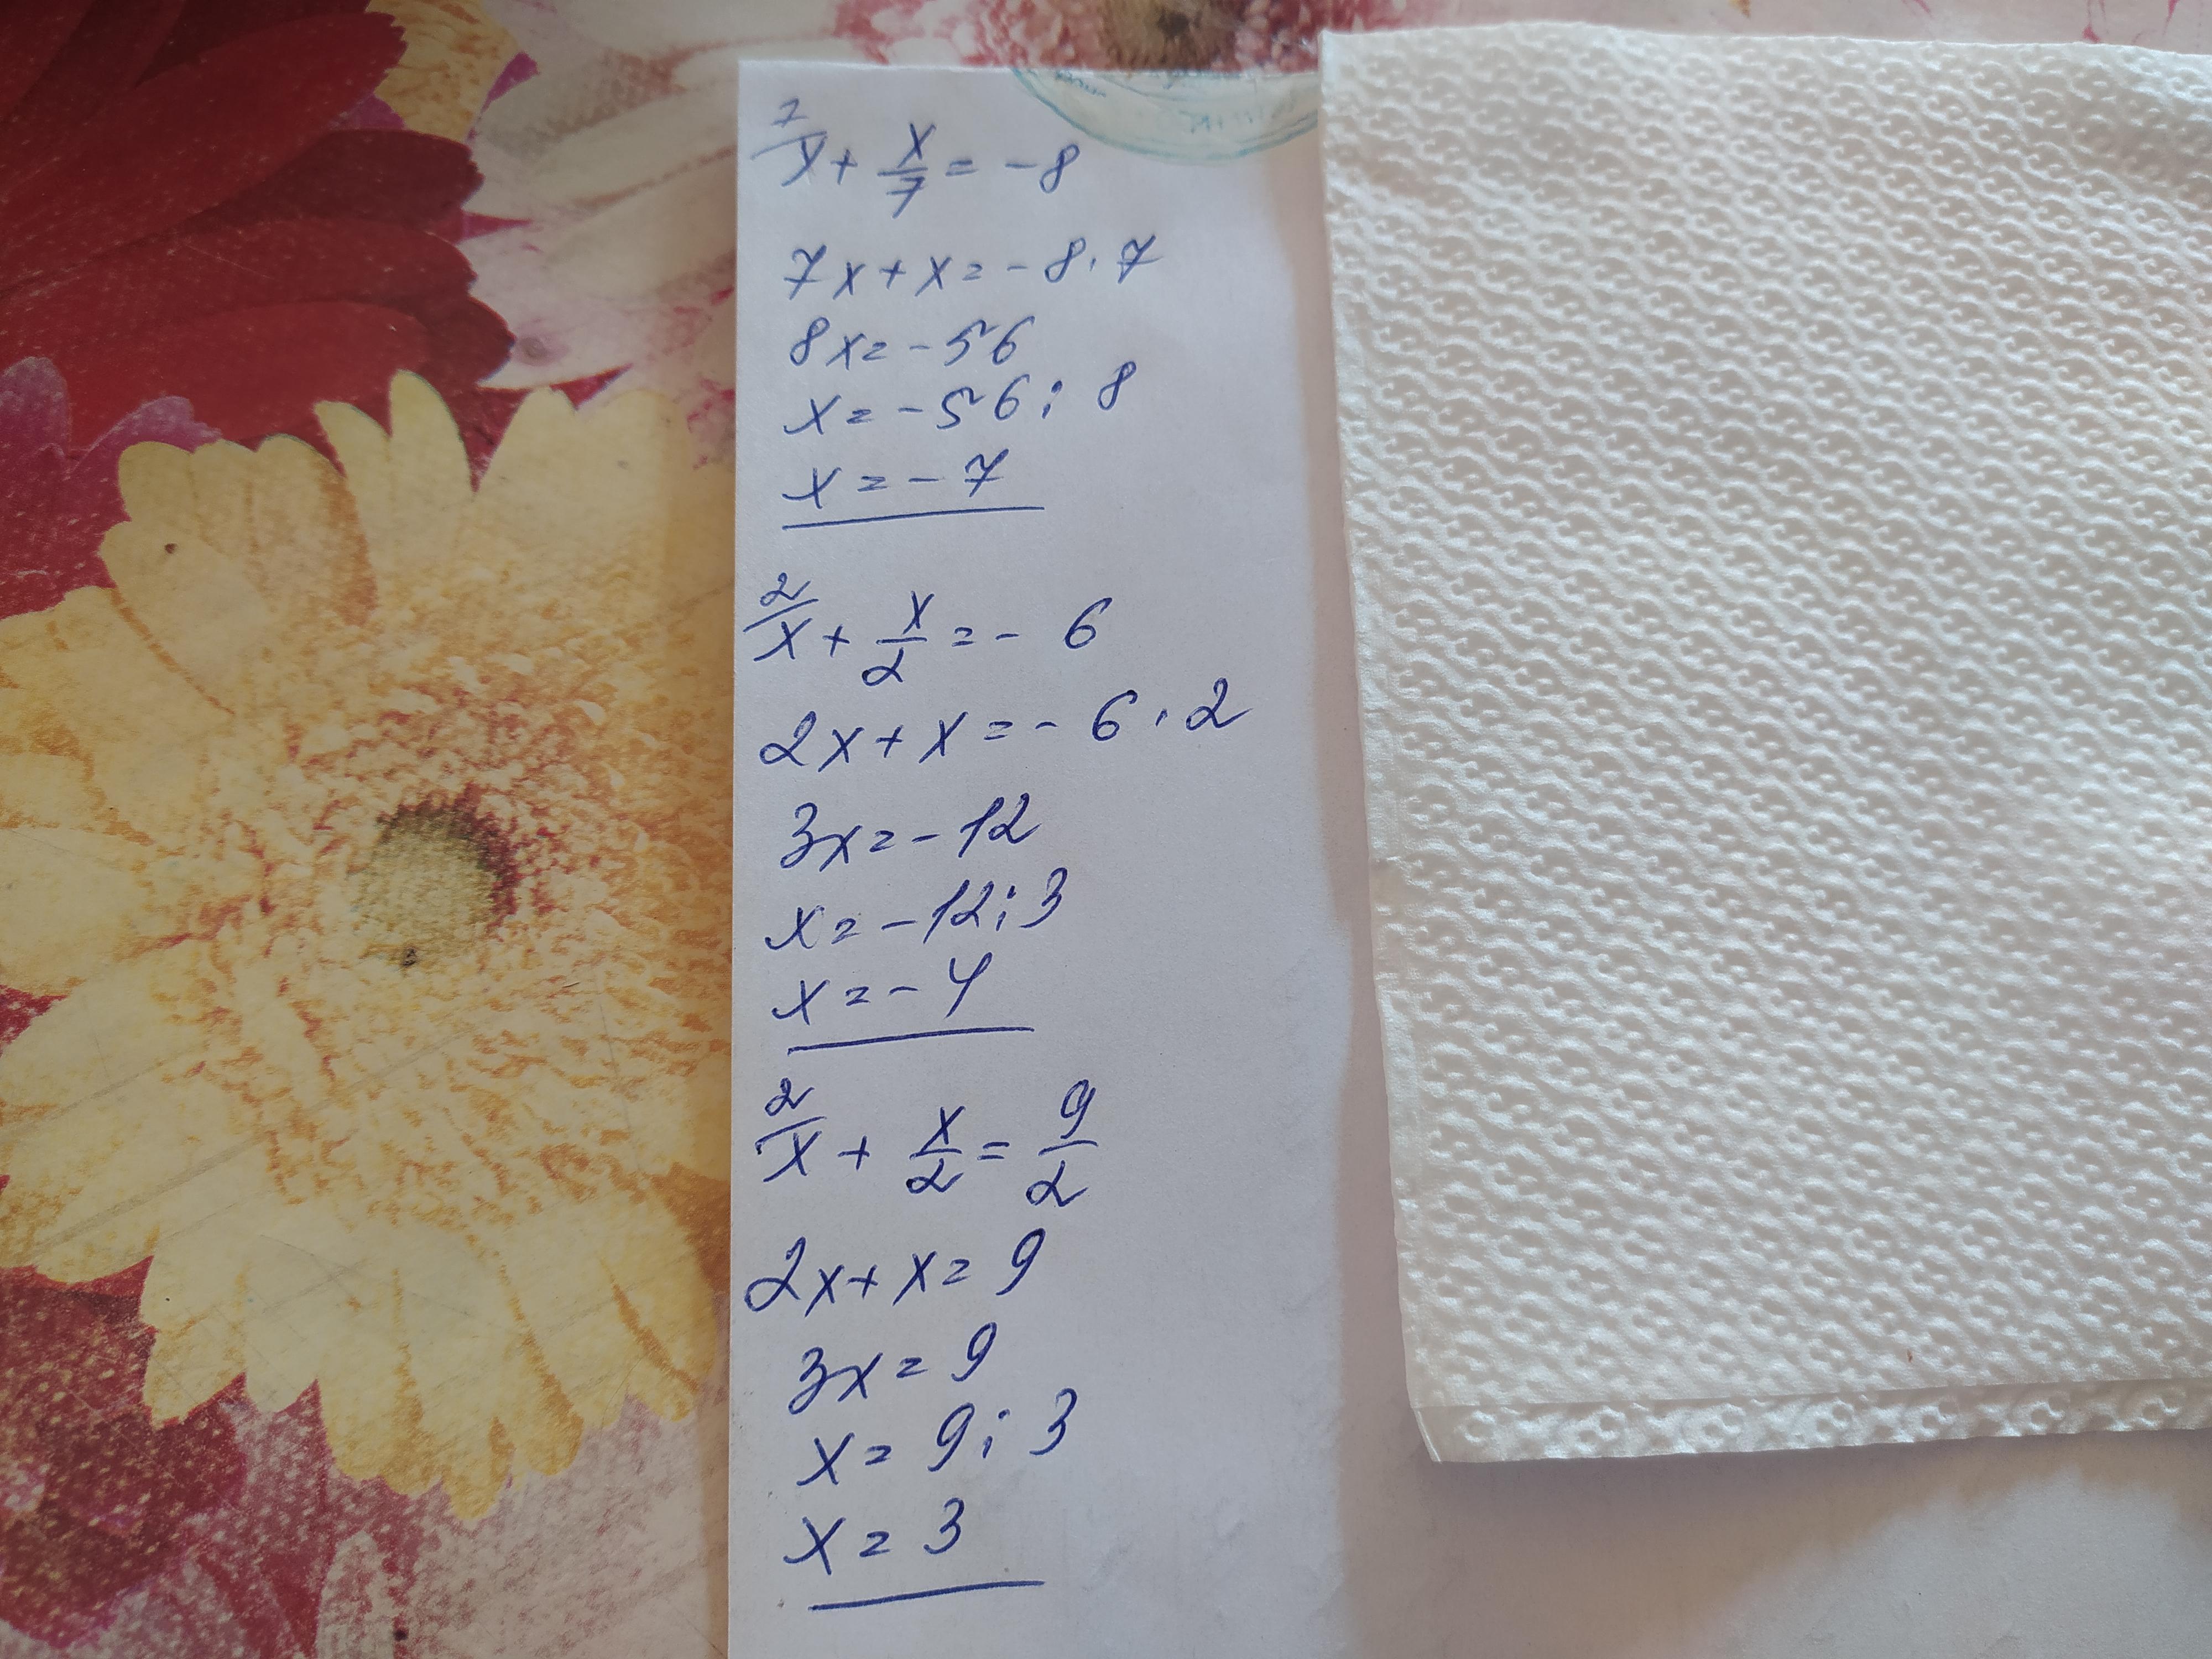 7/x + x/7 = -8
7x + x = -8 · 7
8x = -56
x = -56 : 8
x = -7
2/x + x/2 = -6
2x + x = -6 · 2
3x = -12
x = -12 : 3
x = -4
2/x + x/2 = 9/2
2x + x = 9
3x = 9
x = 9 : 3
x = 3